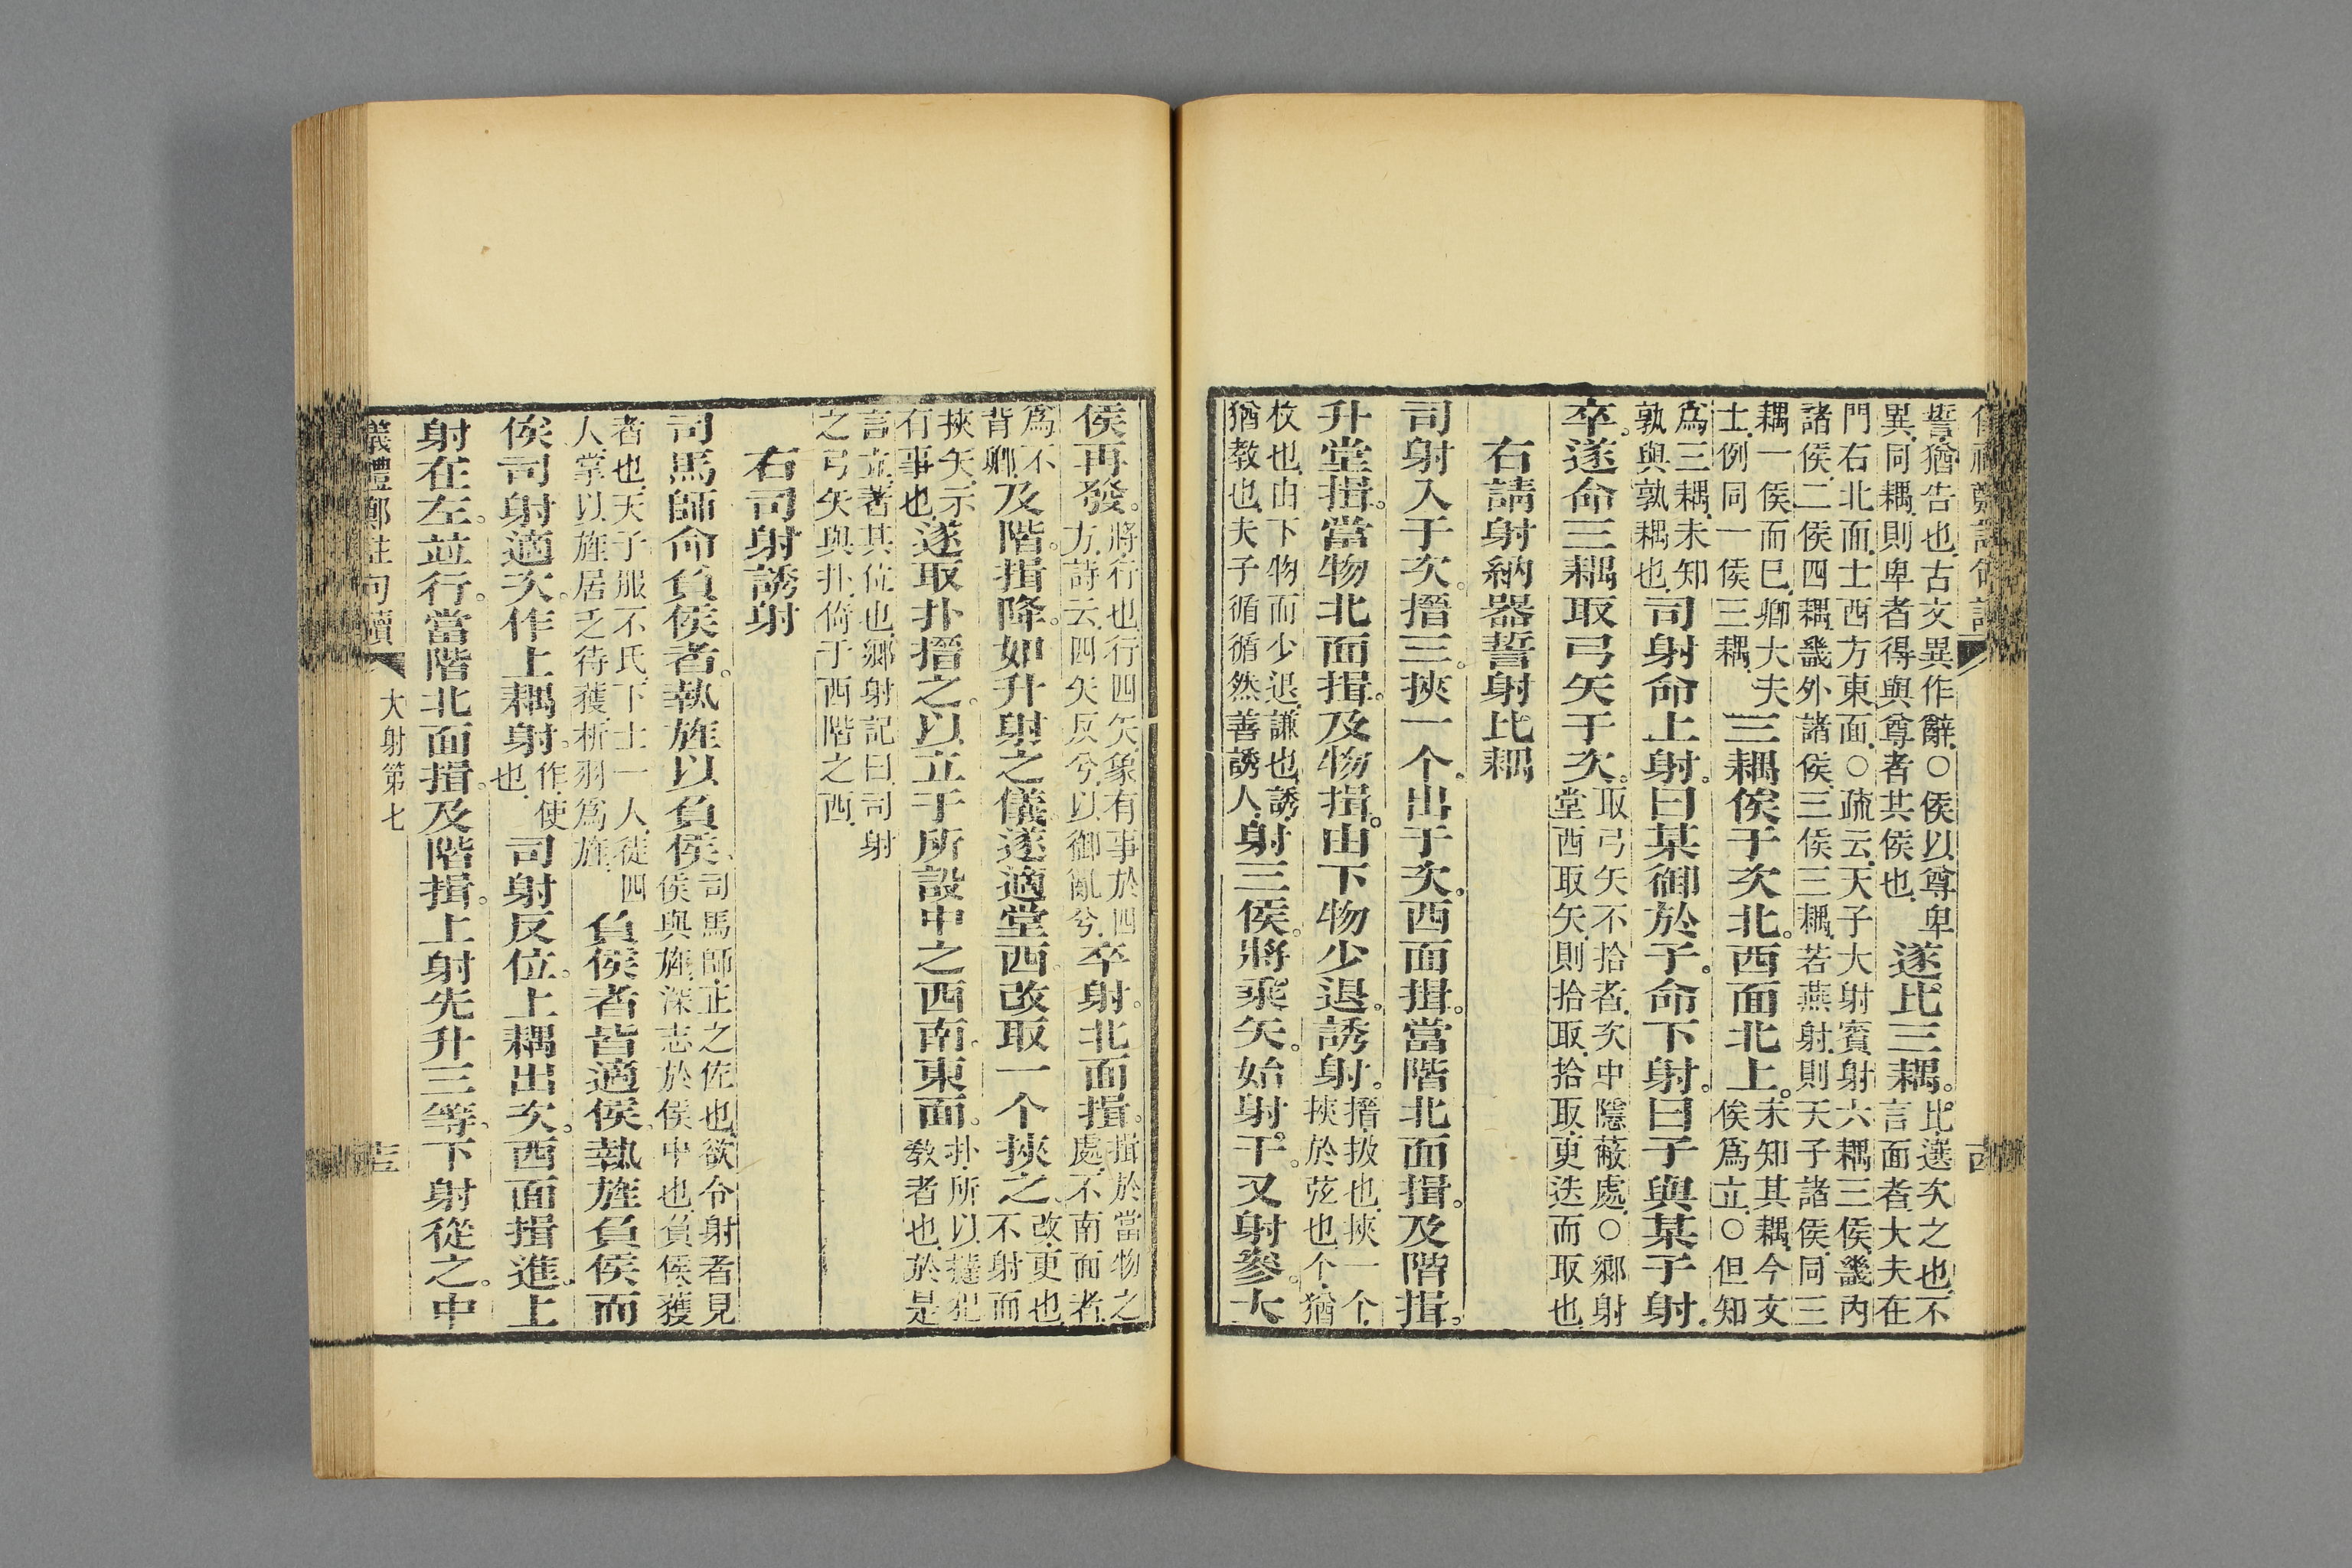 誓猶告也古文異作辭○侯以尊卑
異同耦則卑者得與尊者其侯也
遂比三耦。
比選次之也不
言面者大夫在
門右北面士西方東面○疏云天子大射賓射六耦三侯畿內
諸侯二侯四耦畿外諸侯三侯三耦若燕射則天子諸侯同三
耦一侯而已卿大夫
士例同一侯三耦
三耦俟于次北。西面北上。
未知其耦今文
俟爲立○但知
爲三耦未知
孰與孰耦也
司射命上射。曰某御於子。命下射。曰子與某子射。
卒。遂命三耦取弓矢于次。
取弓矢不拾者次中隱蔽處○鄉射
堂西取矢則拾取拾取更迭而取也
右請射納器誓射比耦
司射入于次。搢三。挾一个。出于次。西面揖。當階北面揖。及階揖。
升堂揖。當物北面揖。及物揖。由下物少退。誘射。
搢扱也挾一个
挾於弦也个猶
枚也由下物而少退謙也誘
猶教也夫子循循然善誘人
射三侯。將乘矢。始射干。又射參。大
侯再發。
將行也行四矢象有事於四
方詩云四矢反兮以御亂兮
卒射。北面揖。
揖於當物之
處不南面者
爲不
背卿
及階。揖降。如升射之儀。遂適堂西。改取一个挾之。
改更也
不射而
挾矢示
有事也
遂取扑搢之。以立于所設中之西南。東面。
扑所以撻犯
教者也於是
言立著其位也鄉射記曰司射
之弓矢與扑倚于西階之西
右司射誘射
司馬師命負侯者。執旌以負侯。
司馬師正之佐也欲令射者見
侯與旌深志於侯中也負侯獲
者也天子服不氏下士一人徒四
人掌以旌居乏待獲析羽爲旌
負侯者皆適侯。執旌負侯而
俟司射適次。作上耦射。
作使
也
司射反位。上耦出次。西面揖進。上
射在左。並行。當階北面揖。及階揖。上射先升三等。下射從之。中
儀禮鄭註句讀
大射第七